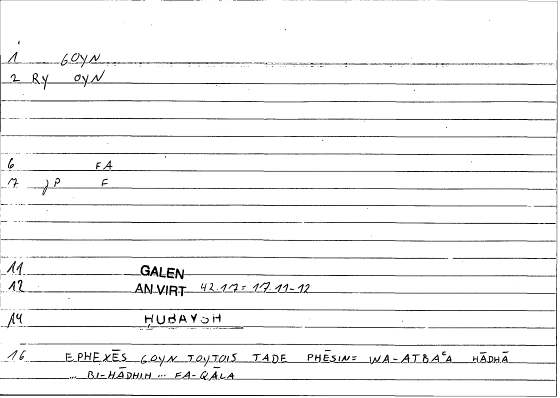 1 GOYN
2 RY OYN
6 FA
7 JP F
11 GALEN
12 AN VIRT 42.17 = 17.11-12
14 ḤUBAYSH
16 EPHEXĒS GOYN TOYTOIS TADE PHĒSIN = WA-ATBAʿA HĀDHĀ
... BI-HĀDHIH ... FA-QĀLA